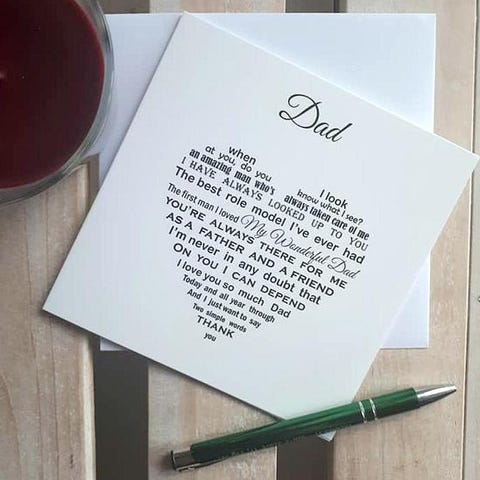 Dad
when I look
at you, do you know what I see?
an amazing man who's always taken care of me
I HAVE ALWAYS LOOKED UP TO YOU
The best role model I've ever had
The first man I loved My Wonderful Dad
YOU'RE ALWAYS THERE FOR ME
AS A FATHER AND A FRIEND
I'm never in any doubt that
ON YOU I CAN DEPEND
I love you so much Dad
Today and all year through
And I just want to say
Two simple words
THANK
you